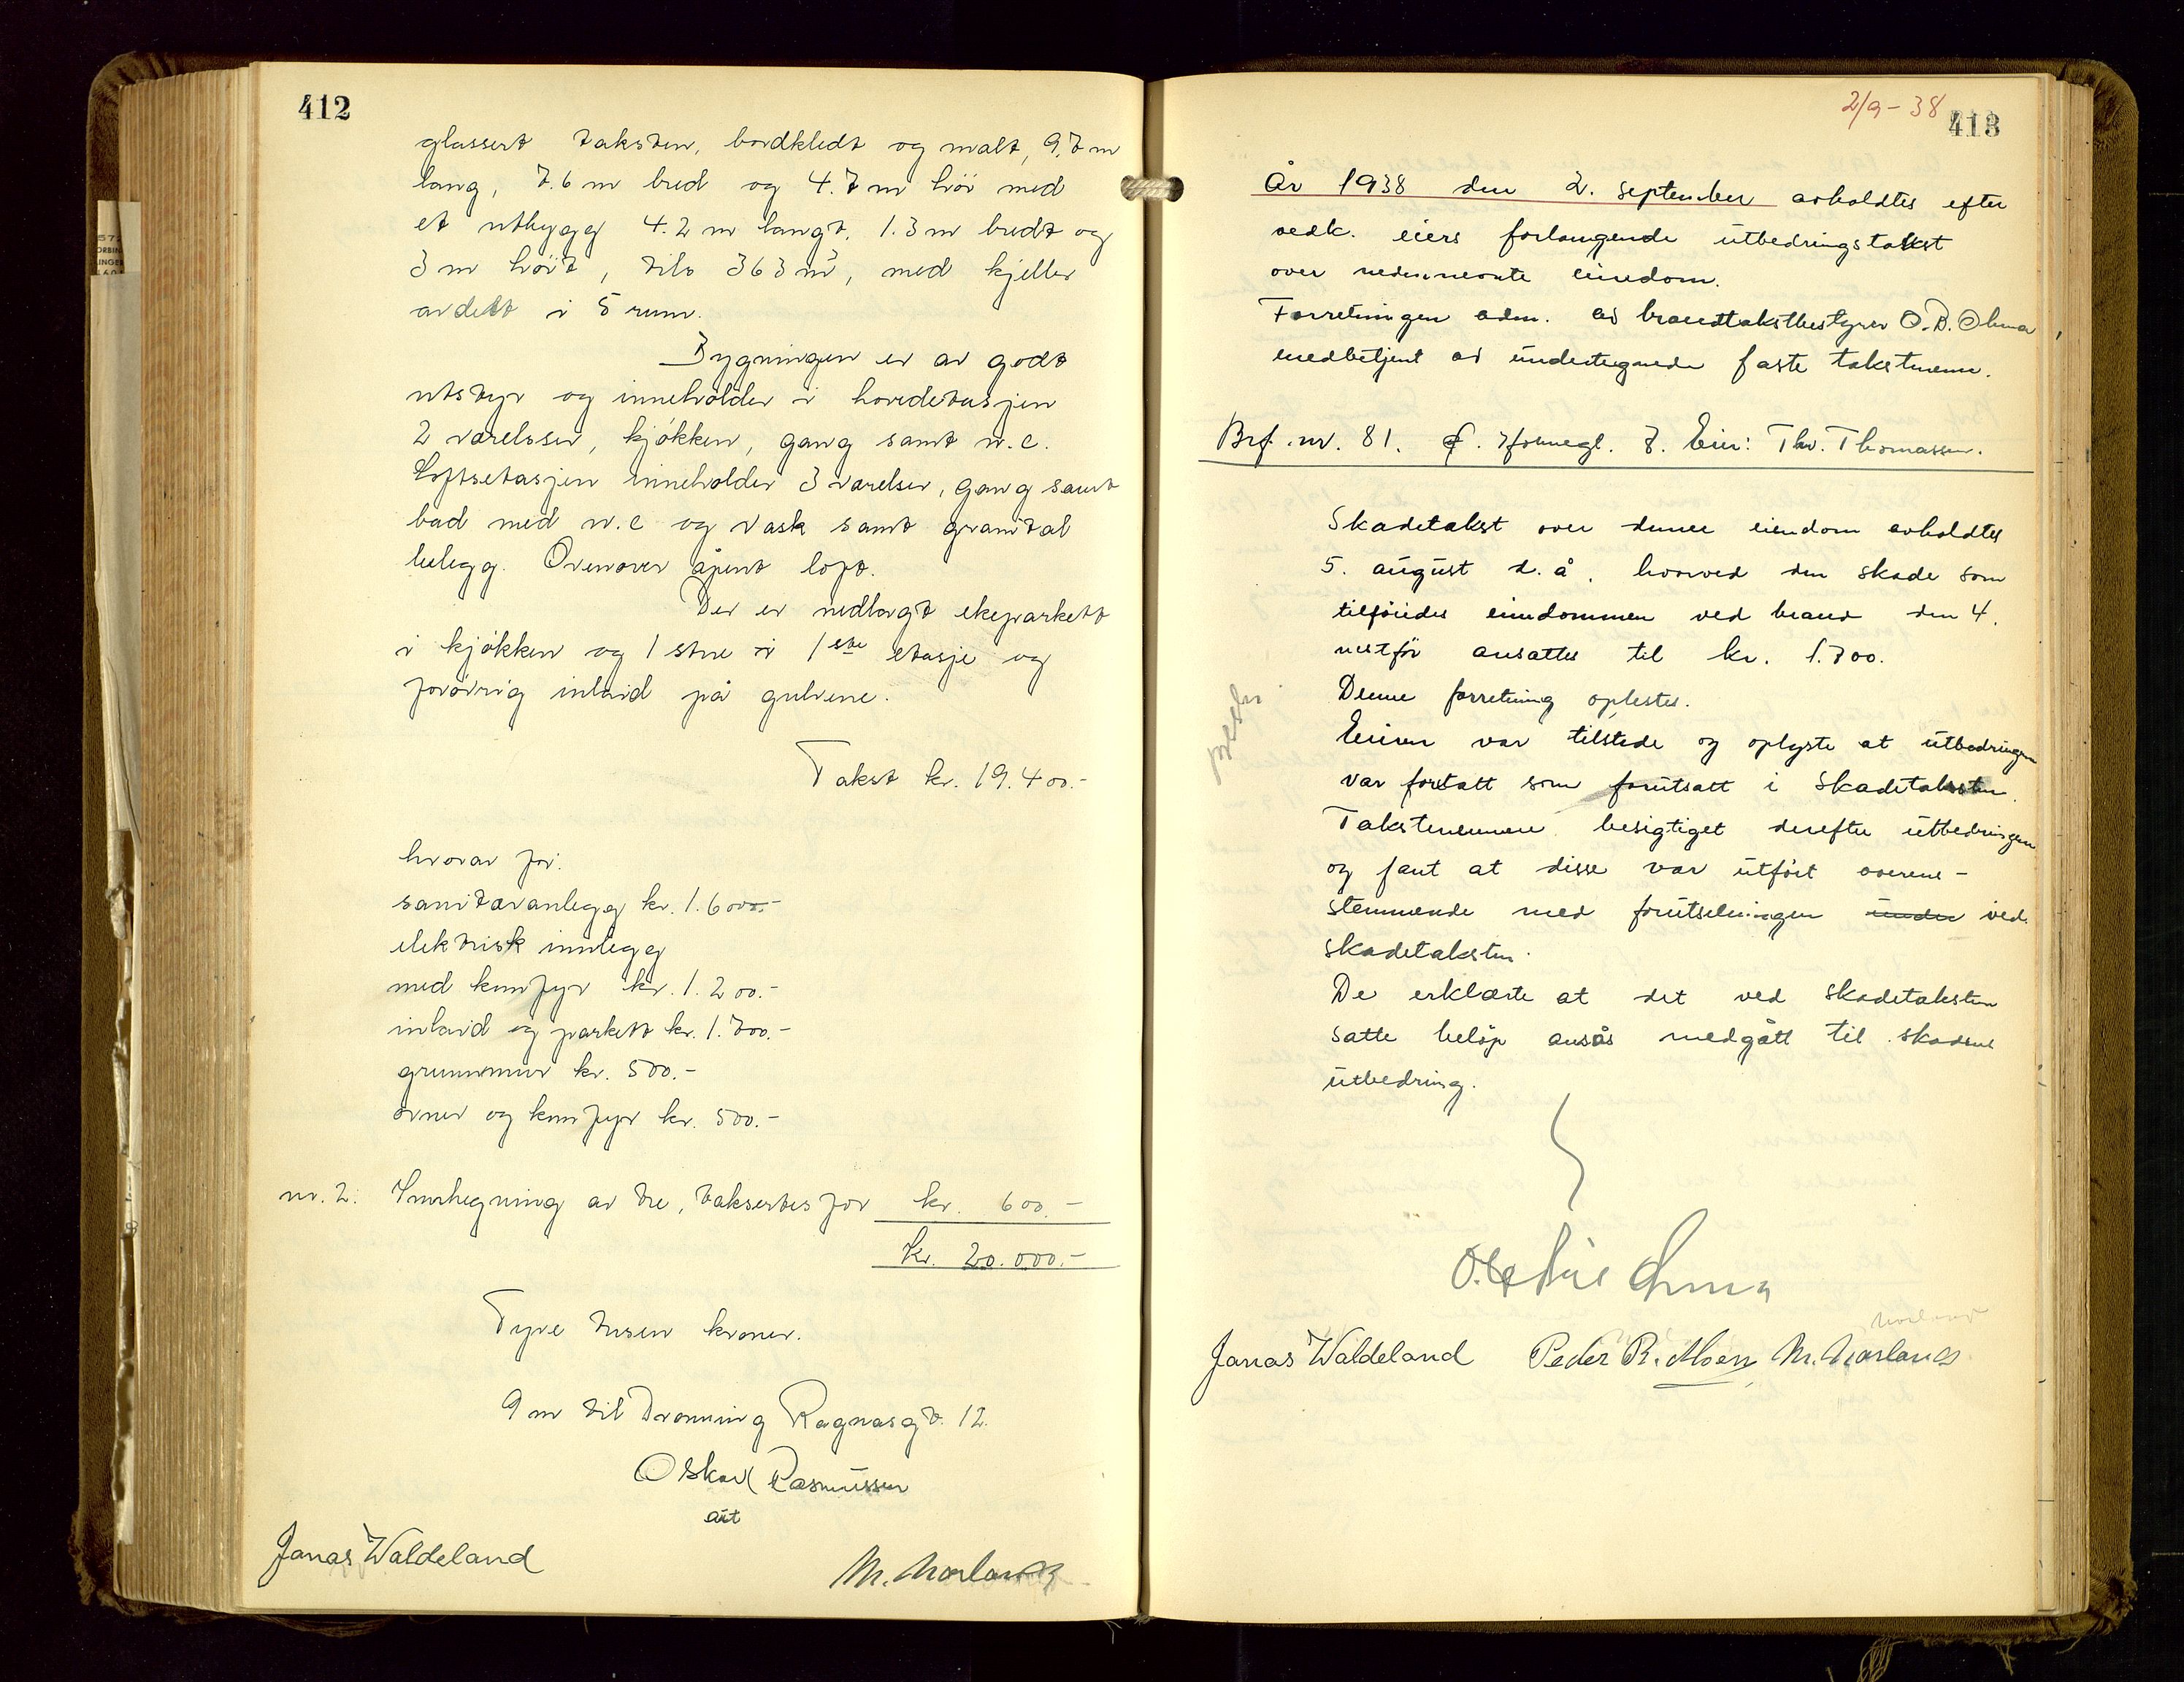 412
glassert taksten, bordkledt og malt, 9.7 m
lang, 7.6 m bred og 4.7 m höi med
et utbygg 4.2 m langt, 1.3 m bredt og
3 m höit, tils 363 m³, med kjeller
avdelt i 5 rum.
Bygningen er av godt
utstyr og inneholder i hovedetasjen
2 værelser, kjøkken, gang samt w.c.
Loftsetasjen inneholder 3 værelser, gang samt
bad med w.c og vask samt granital
belegg. Ovenover åpent loft.
Der er nedlagt ekeparkett
i kjøkken og 1 stue i 1ste etasje og
forøvrig inlaid på gulvene.
Takst kr. 19.400.-
hvorav for:
sanitæranlegg kr. 1.600.-
elektrisk innlegg
med komfyr kr. 1.200.-
inlaid og parkett kr. 1.700.-
grunnmur kr. 500.-
ovner og komfyr kr. 500.-
nr. 2. Innhegning av tre, takseres for kr. 600.-
kr. 20.000.-
Tyve tusen kroner.
9 m til Dronning Ragnasgt. 12.
Oskar Rasmussen
Jonas Waldeland
M. Norland
2/9-38
413
År 1938 den 2. september avholdtes efter
vedk. eiers forlangende utbedringstakst
over nedennevnte eiendom.
Forretningen adm. av brandtakstbestyrer O.B. Ohma
medbetjent av undertegnede faste takstmenn.
Brf. nr. 81. Hornegt. 7. Eier: Thv. Thomassen.
Skadetakst over denne eiendom avholdtes
5. august d.å. hvorved den skade som
tilføiedes eiendommen ved brand den 4.
nestfør ansattes til kr. 1.700.
Denne forretning oplestes.
Eieren var tilstede og oplyste at utbedringen
var foretatt som forutsatt i skadetaksten.
Takstmennene besigtiget derefter utbedringen
og fant at disse var utført overens-
stemmende med forutsetningen under ved
skadetaksten.
De erklærte at det ved skadetaksten
satte beløp ansås medgått til skadens
utbedring.
Jonas Waldeland Peder R. Moen M. Norland